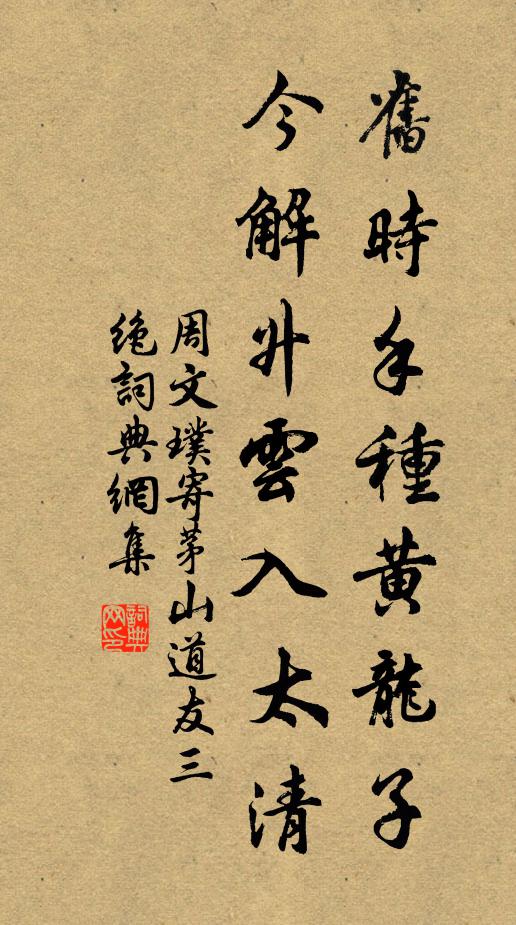 舊時手種黄龍子
今解升雲入太清
周文璞寄茅山道友三
絶詞典網集
詞典
网印